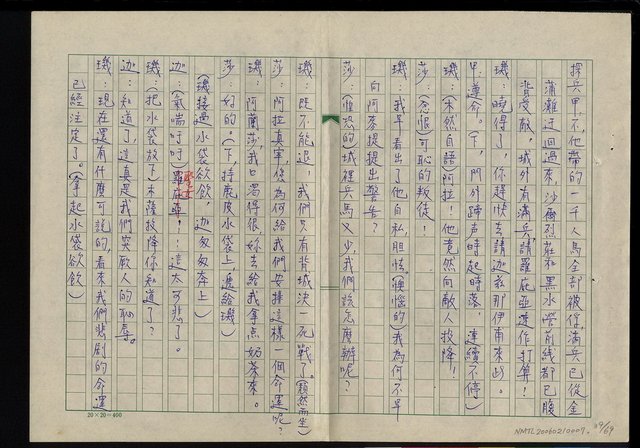 探兵甲:不,他帶的一千人馬全部被俘,滿兵已從金
蒲灘迂回過來,沙爾烈莊和黑水營前線都已腹
背受敵,城外有滿兵,請羅庇亞速作打算!
璣:曉得了,你趕快去請迦茲那伊南來此。
甲:遵命。(下,門外蹄声時起時落,連續不停)
璣:(木然自語)阿拉!他竟然向敵人投降!
莎:(忿恨)可恥的叛徒!
璣:我早看出了他自私,胆怯。(懊惱的)我為何不早
向阿麥提提出警告?
莎:(惶恐的)城裡兵馬又少,我們該怎麼辦呢?
璣:既不能退,我們只有背城決一死戰了。(頹然而坐)
莎:阿拉真宰,您為何給我們安排這樣一個命運呢?
璣:阿蘭莎,我口渴得很,妳去給我拿点奶茶來。
莎:好的。(下,持鹿皮水袋上,遞給璣)
(璣接過水袋欲飲,迦匆匆奔上)
迦:(氣喘吁吁)羅庇亞!!這太可悲了。
璣:(把水袋放下)木薩投降你知道了?
迦:知道了,這真是我們突厥人的恥辱。
璣:現在還有什麼可說的,看來我們悲劇的命運
已經注定了。(拿起水袋欲飲)
20×20=400
39/69
NMTL20060210007